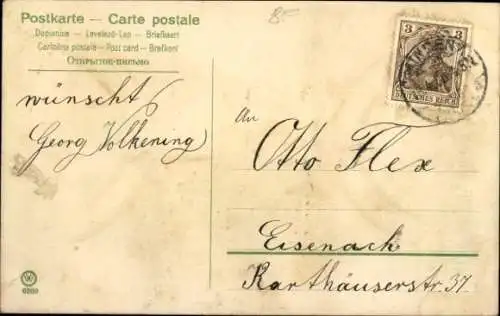 Postkarte – Carte postale
Dopisnice – Levelező-Lap – Briefkaart
Cartolina postale – Post card – Brefkort
Открытое письмо
8F
3 3
DEUTSCHES REICH
wünscht
Georg Volkening
An
Otto Flex
Eisenach
Karthäuserstr. 37.